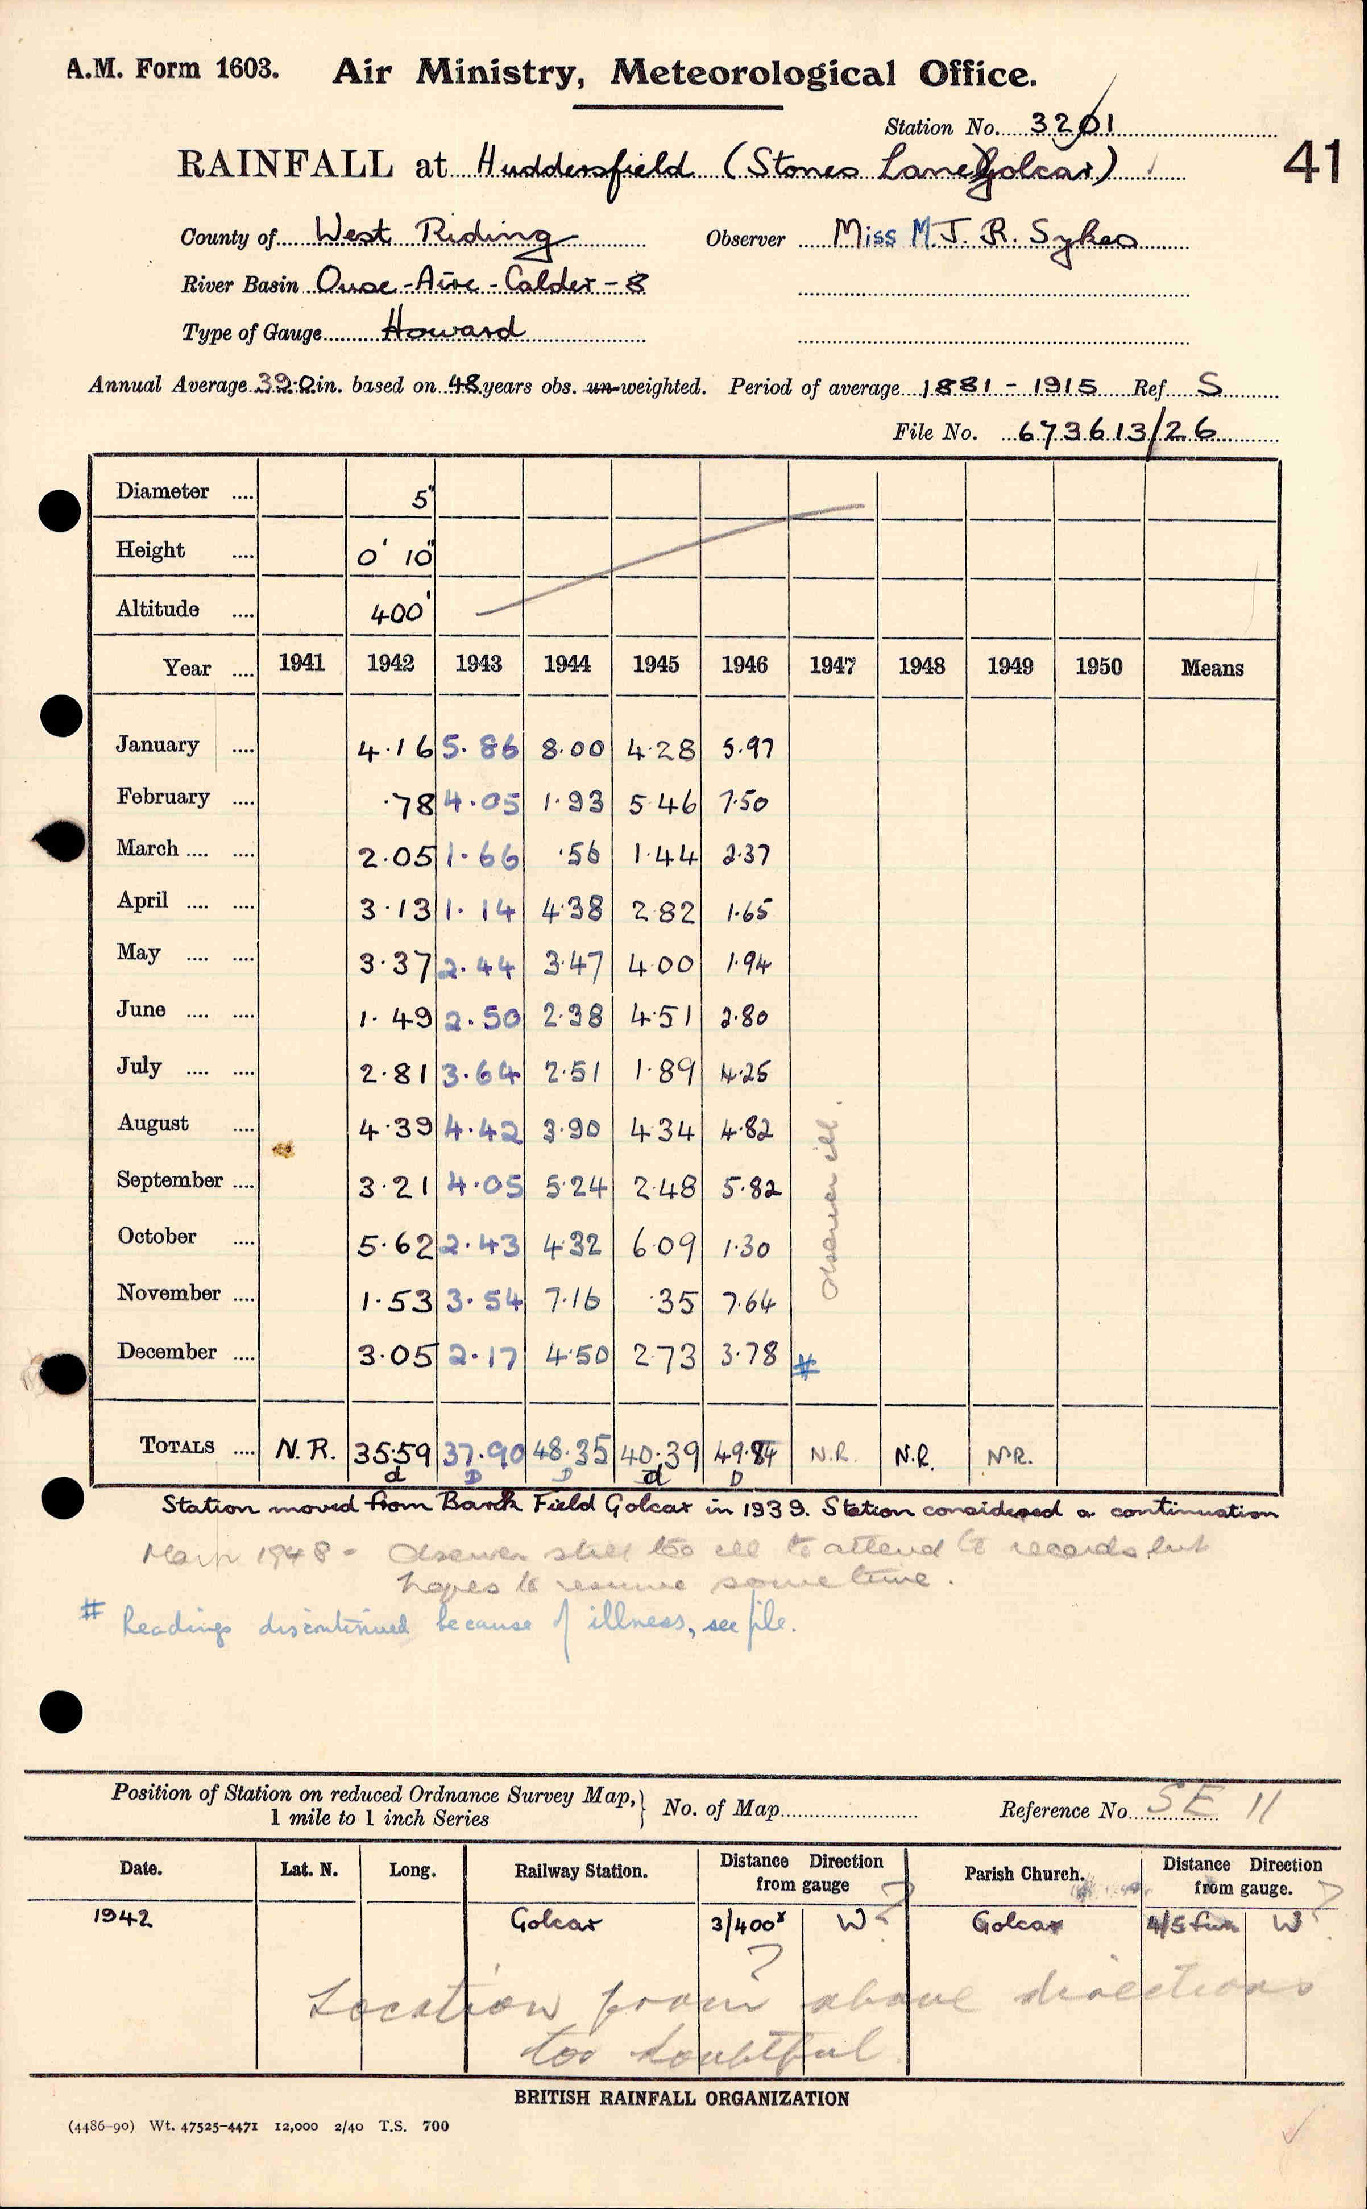 A.M. Form 1603. Air Ministry, Meteorological Office.
Station No. 3201
RAINFALL at Huddersfield (Stones Lane Golcar) 41
County of West Riding Observer Miss M. J. R. Sykes
River Basin Ouse - Aire - Calder - 8
Type of Gauge Howard
Annual Average 39.0 in. based on 48 years obs. un-weighted. Period of average 1881 - 1915 Ref S
File No. 673613/26
Diameter .... 5"
Height .... 0' 10"
Altitude .... 400'
Year .... 1941 1942 1943 1944 1945 1946 1947 1948 1949 1950 Means
January .... 4.16 5.86 8.00 4.28 5.97
February .... .78 4.05 1.93 5.46 7.50
March .... .... 2.05 1.66 .56 1.44 2.37
April .... .... 3.13 1.14 4.38 2.82 1.65
May .... .... 3.37 2.44 3.47 4.00 1.94
June .... .... 1.49 2.50 2.38 4.51 2.80
July .... .... 2.81 3.64 2.51 1.89 4.25
August .... 4.39 4.42 3.90 4.34 4.82
September .... 3.21 4.05 5.24 2.48 5.82
October .... 5.62 2.43 4.32 6.09 1.30
November .... 1.53 3.54 7.16 .35 7.64
December .... 3.05 2.17 4.50 2.73 3.78 #
Observer ill.
TOTALS .... N.R. 35.59 37.90 48.35 40.39 49.84 N.R. N.R. N.R.
d D D d D
Station moved from Bank Field Golcar in 1939. Station considered a continuation
1948 - Observer still too ill to attend to records, but
hopes to resume sometime.
# Readings discontinued because of illness, see file.
Position of Station on reduced Ordnance Survey Map, } No. of Map Reference No. SE 11
1 mile to 1 inch Series
Date. Lat. N. Long. Railway Station. Distance Direction from gauge ? Parish Church. Distance Direction from gauge. ?
1942 Golcar 3/400x W ? Golcar 4/5 fur W ?
?
Location from above directions
too doubtful
BRITISH RAINFALL ORGANIZATION
(4486-90) Wt. 47525-4471 12,000 2/40 T.S. 700